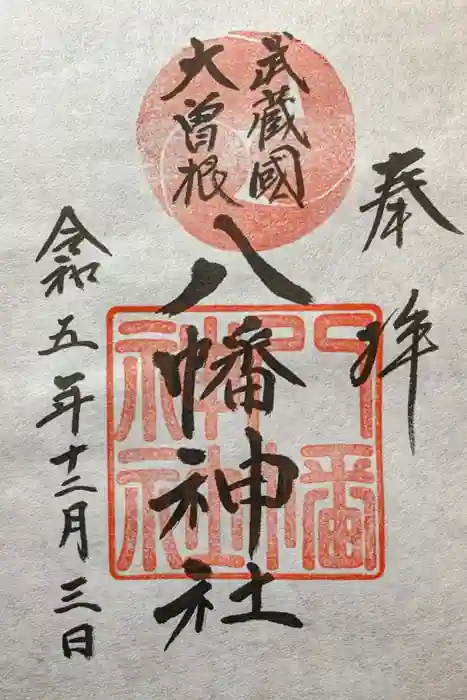 奉拝
武蔵國
大曽根
八幡神社
令和五年十二月三日
八幡神社